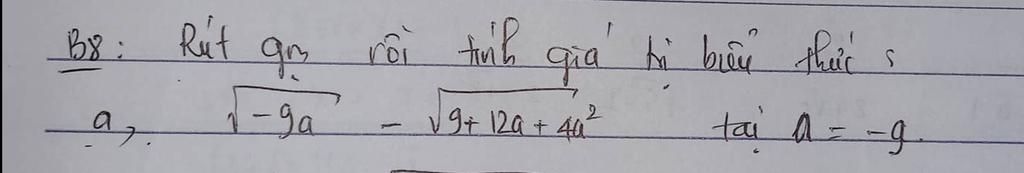 B8: Rút gọn rồi tính giá trị biểu thức:
a, √-9a - √9+12a+4a² tại a = -9.